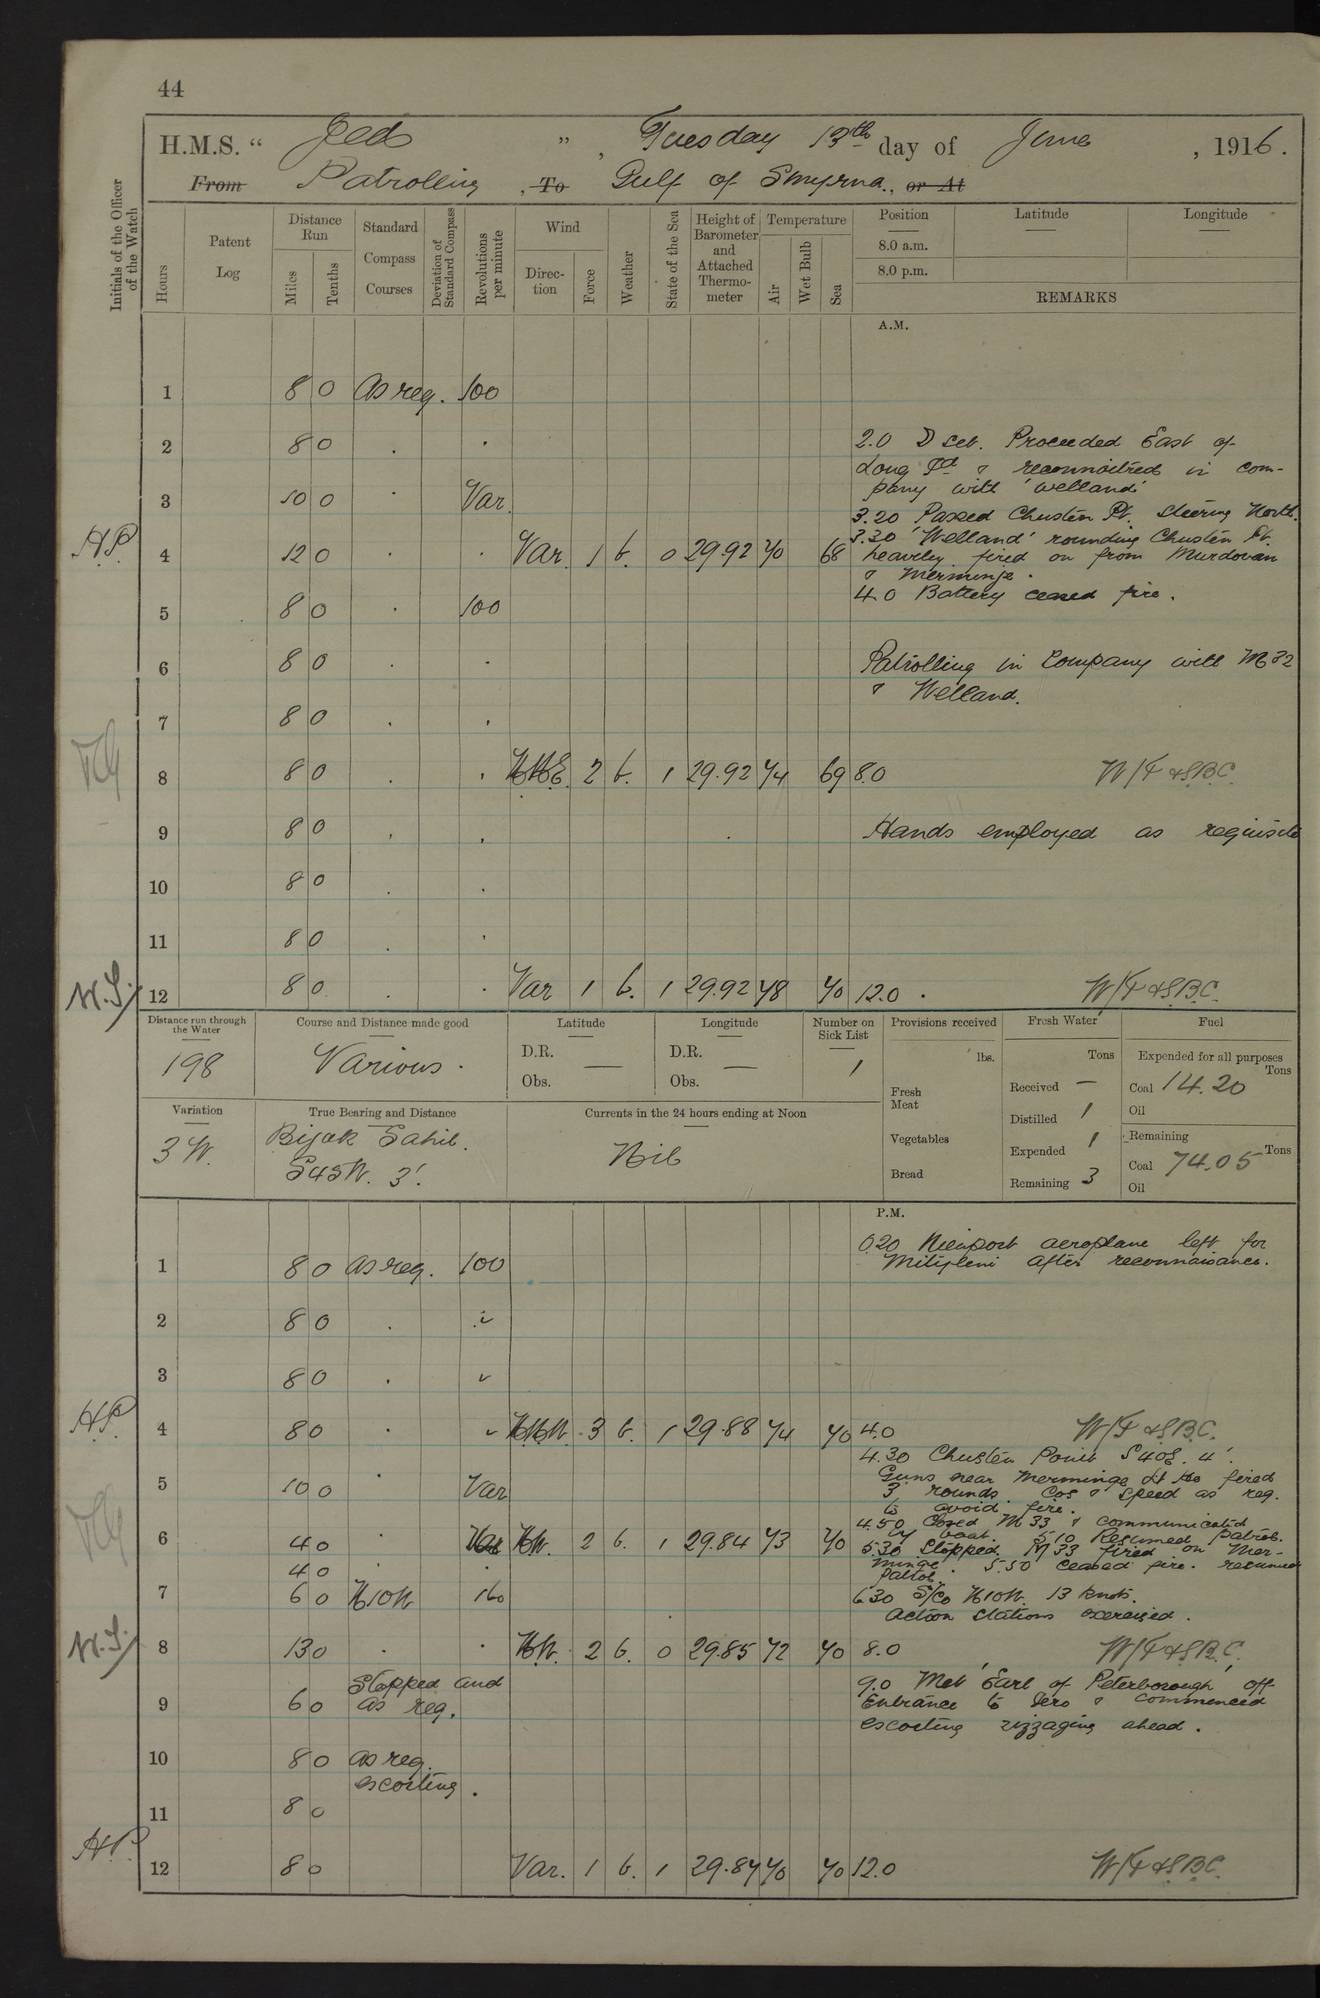 44
H.M.S. “ Jed ”, Tuesday 13th day of June, 1916.
From Patrolling, To Gulf of Smyrna., or At
Initials of the Officer of the Watch
Hours
Patent Log
Distance Run
Miles
Tenths
Standard Compass Courses
Deviation of Standard Compass
Revolutions per minute
Wind
Direction
Force
Weather
State of the Sea
Height of Barometer and Attached Thermometer
Temperature
Air
Wet Bulb
Sea
Position Latitude Longitude
8.0 a.m.
8.0 p.m.
REMARKS
A.M.
1 8 0 As req. 100
2 8 0 . . 2.0 D set. Proceeded East of
Long Id & reconnoitred in com-
pany with 'Welland'
3 10 0 . Var.
3.20 Passed Chustan Pt. steering North.
3.30 'Welland' rounding Chustan Pt.
H.P. 4 12 0 . . Var. 1 b. 0 29.92 70 68 heavily fired on from Murdovan
& Merminge.
4.0 Battery ceased fire.
5 8 0 . 100
6 8 0 . . Patrolling in Company with M32
& Welland.
7 8 0 . .
8 8 0 . . NNE. 2 b. 1 29.92 74 69 8.0 W/T & S.B.C.
9 8 0 . . Hands employed as requisite
10 8 0 . .
11 8 0 . .
12 8 0 . . Var 1 b. 1 29.92 78 70 12.0 . W/T & S.B.C.
Distance run through the Water
198
Course and Distance made good
Various.
Latitude
D.R. —
Obs.
Longitude
D.R. —
Obs.
Number on Sick List
1
Provisions received
lbs.
Fresh Meat
Vegetables
Bread
Fresh Water
Tons
Received —
Distilled 1
Expended 1
Remaining 3
Fuel
Expended for all purposes
Tons
Coal 14.20
Oil
Remaining
Coal 74.05 Tons
Oil
Variation
3 W.
True Bearing and Distance
Bijak Sahib.
S45W. 3'.
Currents in the 24 hours ending at Noon
Nil
P.M.
0.20 Nieuport aeroplane left for
1 8 0 as req. 100 Mitipleni after reconnaisance.
2 8 0 .
3 8 0 .
H.P. 4 8 0 . NNW. 3 b. 1 29.88 74 70 4.0 W/T & S.B.C.
4.30 Chustan Point S40E. 4'.
Guns near Merminge fired
5 10 0 . Var 3 rounds. Cos & speed as req.
to avoid fire.
4.50 Closed M33 & communicated
by boat. 5.10 Resumed patrol.
6 4 0 . NW. 2 b. 1 29.84 73 70 5.30 Stopped. M33 fired on Mer-
4 0 . minge. 5.50 ceased fire. resumed
patrol.
7 6 0 N10W 160 6.30 S/Co N10W. 13 knots.
Action stations exercised.
8 13 0 . . NW. 2 b. 0 29.85 72 70 8.0 W/T & S.B.C.
Stopped and 9.0 Met 'Earl of Peterborough' off
9 6 0 as req. Entrance to Iero & commenced
escorting zizzaging ahead.
10 8 0 as req.
escorting.
11 8 0
H.P. 12 8 0 Var. 1 b. 1 29.84 70 70 12.0 W/T & S.B.C.